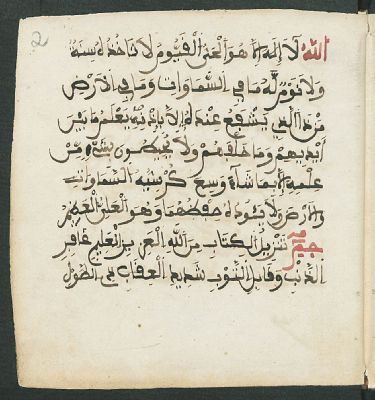 2
الله لا إله إلا هو الحي القيوم لا تاخذه سنة
ولا نوم له ما في السماوات وما في الارض
من ذا الذي يشفع عنده إلا بإذنه يعلم ما بين
أيديهم وما خلفهم ولا يحيطون بشيء من
علمه إلا بما شاء وسع كرسيه السماوات
والارض ولا يئوده حفظهما وهو العلي العظيم
حم تنزيل الكتاب من الله العزيز العليم غافر
الذنب وقابل التوب شديد العقاب ذي الطول